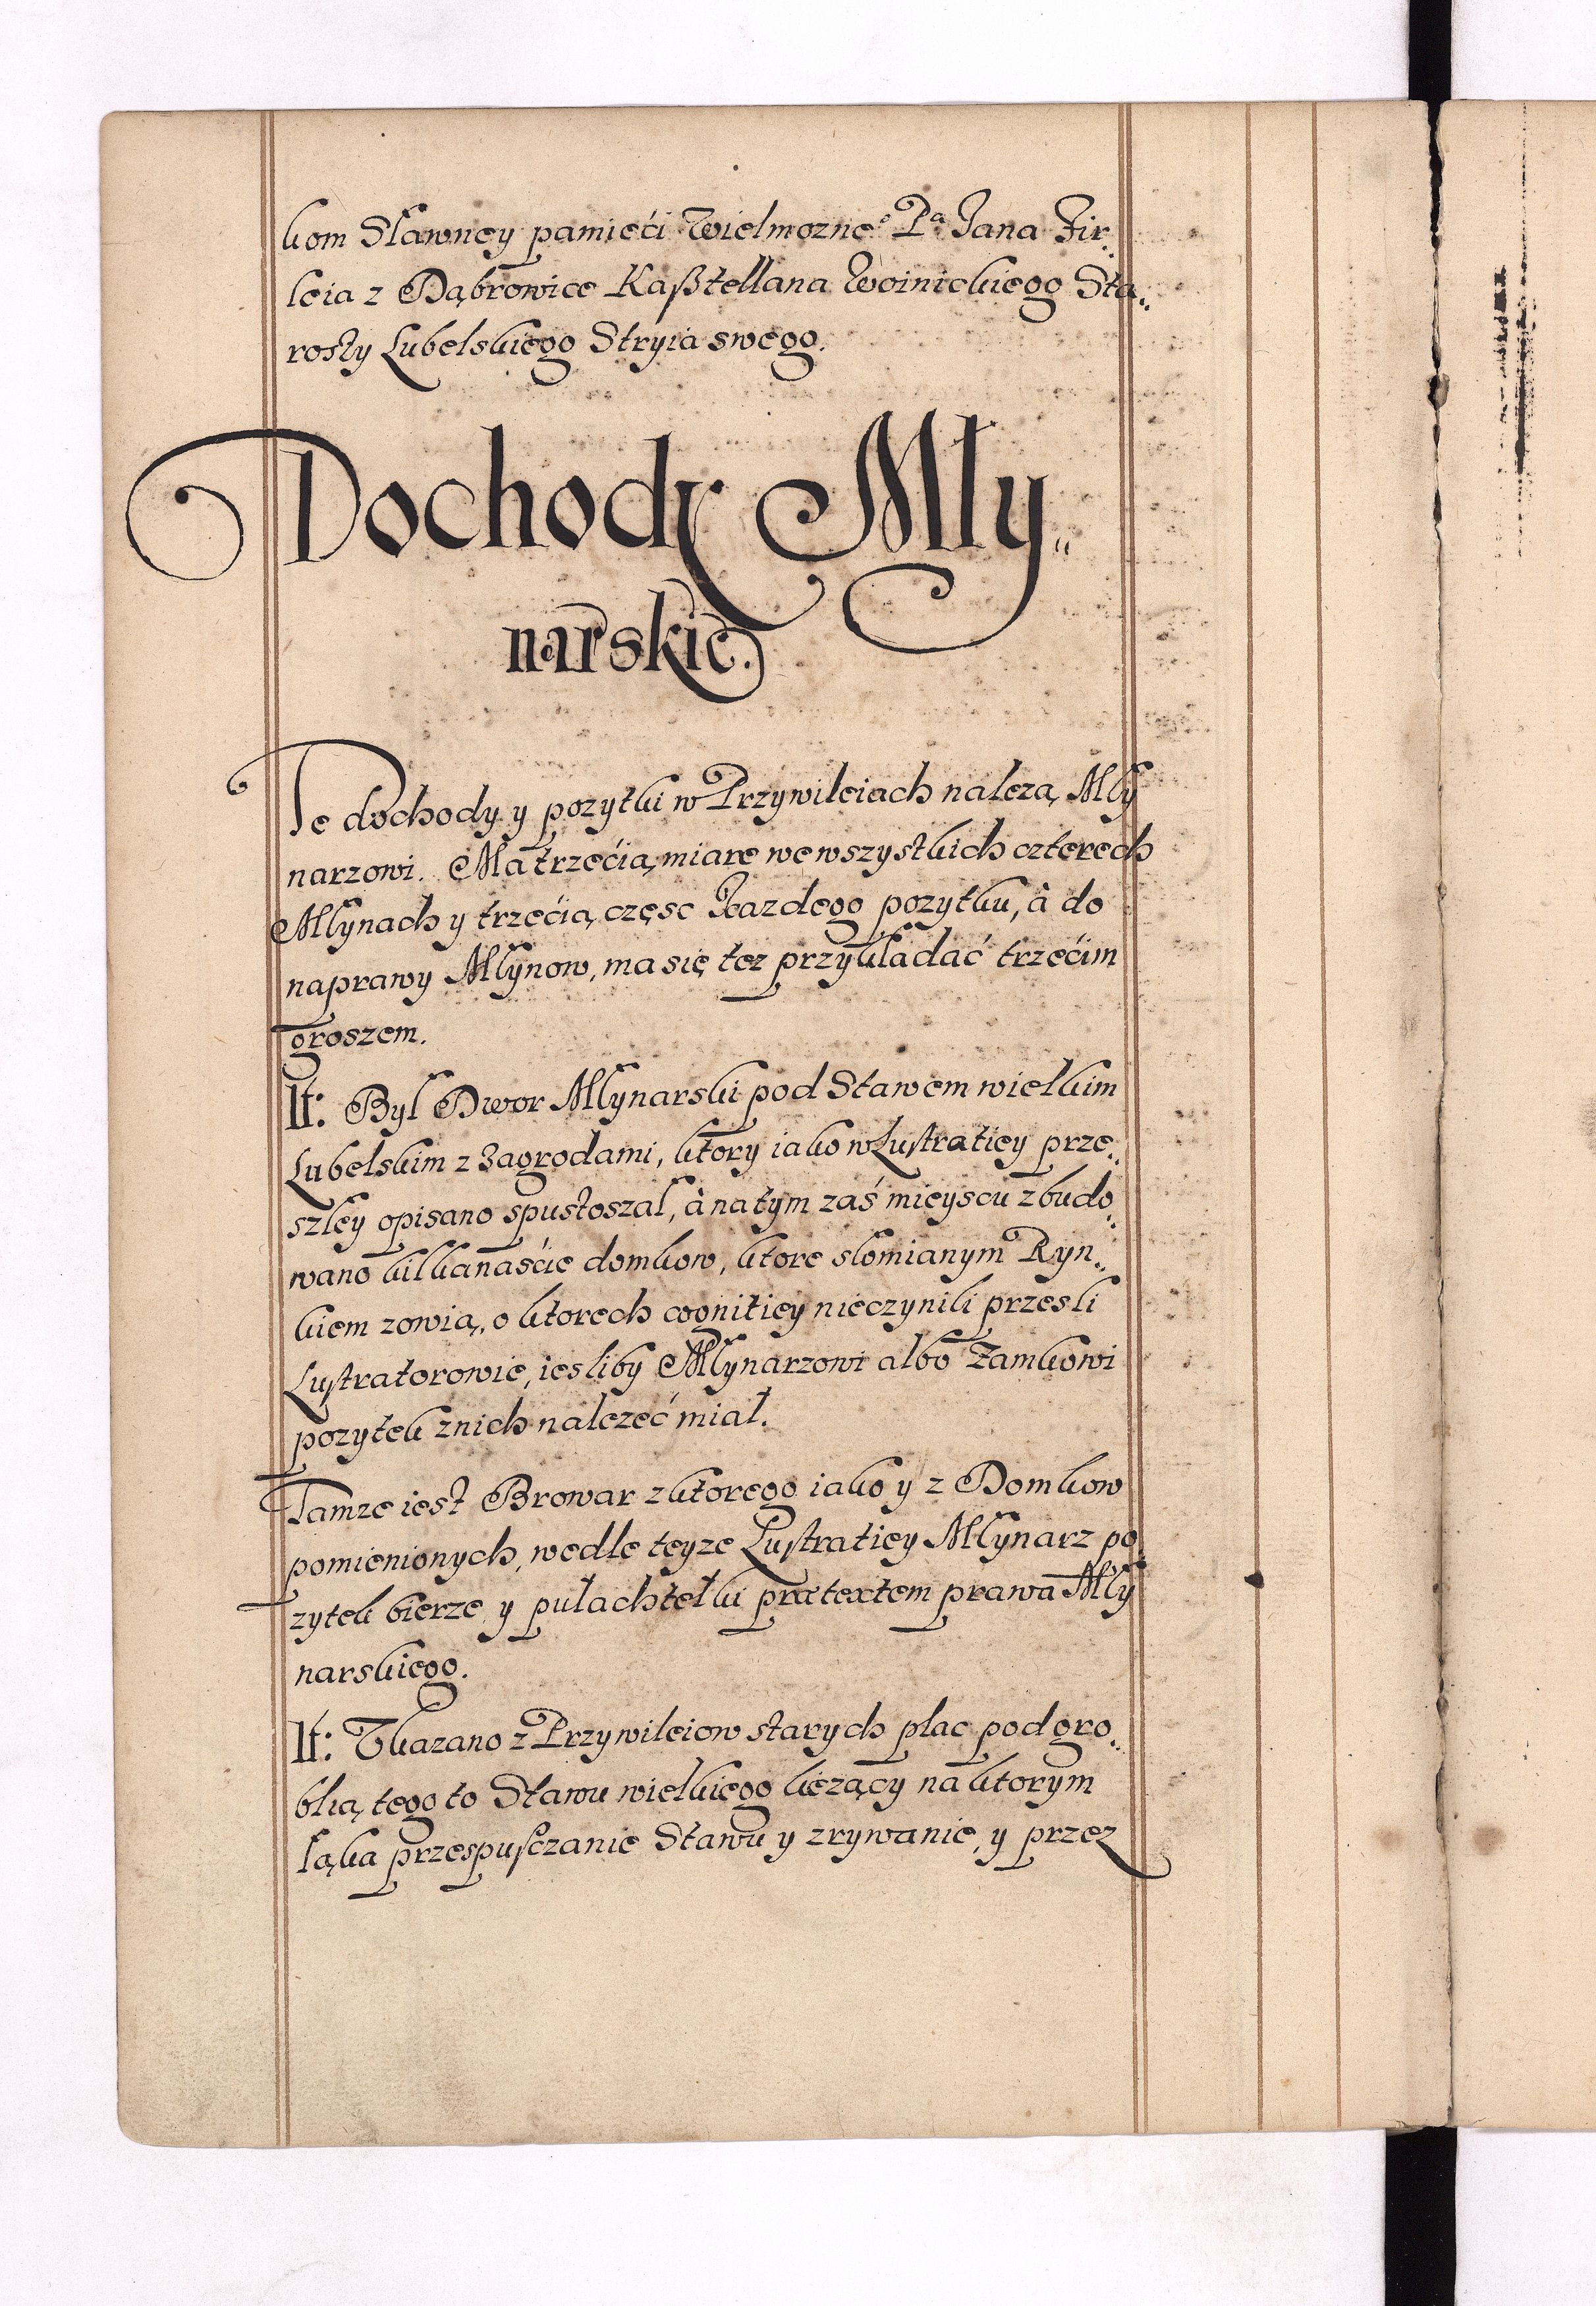 kom Sławney pamięći Wielmozne° Pª Jana Fir„
leia z Dąbrowice Kaßtellana Woinickiego Sta„
rosty Lubelskiego Stryia swego.
Dochody Mły„
narskie.
Te dochody y pozytki w Przywileiach nalezą Mły
narzowi. Ma trzećią miare we wszystkich czterech
Młynach y trzećią częsc kazdego pozytku, à do
naprawy Młynow, ma się tez przykładać trzećim
groszem.
It: Był Dwor Młynarski pod Stawem wielkim
Lubelskim z Zagrodami, ktory iako w Lustratiey prze„
szłey opisano spustoszał, à na tym zaś mieyscu zbudo„
wano kilkanaśćie domkow, ktore słomianym Ryn„
kiem zowią, o ktorech cognitiey nieczynili przesli
Lustratorowie, iesliby Młynarzowi albo Zamkowi
pozytek znich nalezeć miał.
Tamze iest Browar z ktorego iako y z Domkow
pomienionych, wedle teyze Lustratiey Młynarz po
zytek bierze y pułachtełki prætextem prawa Mły
narskiego.
It: Vkazano z Przywileiow starych plac pod gro„
blią tego to Stawu wielkiego lezący na ktorym
łąka przespusczanie Stawu y zrywanie, y przez